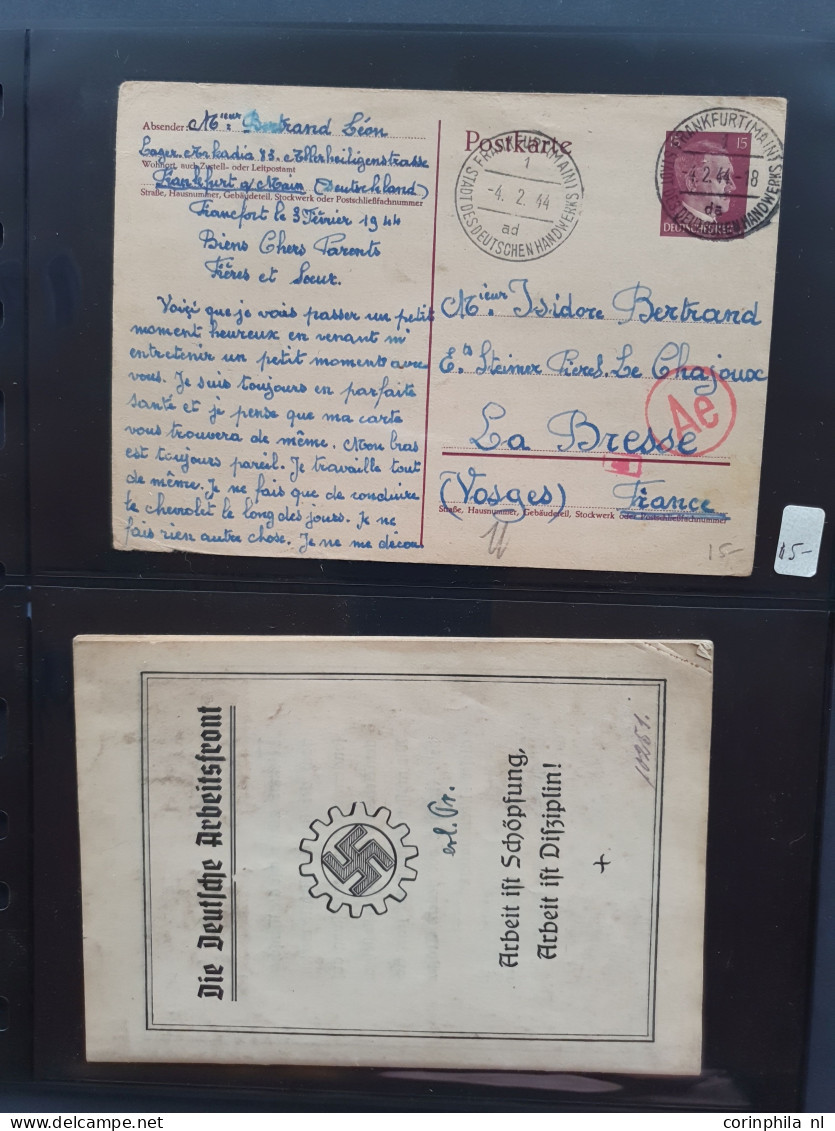 Absender: Mieur: Bertrand Léon
Lager Arkadia 83. Allerheiligenstrasse
Wohnort, auch Zustell- oder Leitpostamt
Frankfurt a/Main (Deutschland)
Straße, Hausnummer, Gebäudeteil, Stockwerk oder Postschließfachnummer
Francfort le 3 Février 1944
Biens Chers Parents
Frères et Sœur.
Voiçi que je vais passer un petit
moment heureux en venant m'
entretenir un petit moment avec
vous. Je suis toujours en parfaite
santé et je pense que ma carte
vous trouvera de même. Mon bras
est toujours pareil. Je travaille tout
de même. Je ne fais que de conduire
le chevrolet le long des jours. Je ne
fais rien autre chose. Je ne me décou
Postkarte
FRANKFURT (MAIN)
1
-4. 2. 44
ad
STADT DES DEUTSCHEN HANDWERKS
15
FRANKFURT (MAIN)
1
-4. 2. 44-18
da
STADT DES DEUTSCHEN HANDWERKS
Mieur: Isidore Bertrand
Ets Steimer Pierel. Le Chajoux
Ae
La Bresse
(Vosges) France
Straße, Hausnummer, Gebäudeteil, Stockwerk oder Postschließfachnummer
15-
85-
Die Deutsche Arbeitsfront
erl. Pr.
Arbeit ist Schöpfung,
Arbeit ist Disziplin!
+
10251.
corinphila nl